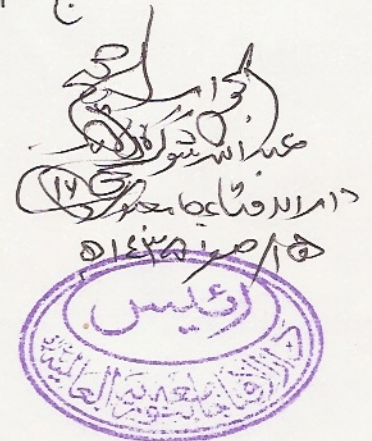 الجواب صحیح
عبداللہ شوکت
دارالافتاء جامعہ بنوریہ
صفر ۱۴۳۸ھ
رئیس
دارالافتاء جامعہ بنوریہ العالمیہ